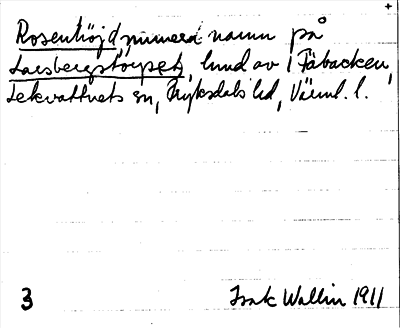 Rosenhöjd, numera namn på
Larsbergstorpet, lund av i Fäbacken,
Lekvattnets sn, Fryksdals hd, Värml. l.
3
Isak Wallin 1911